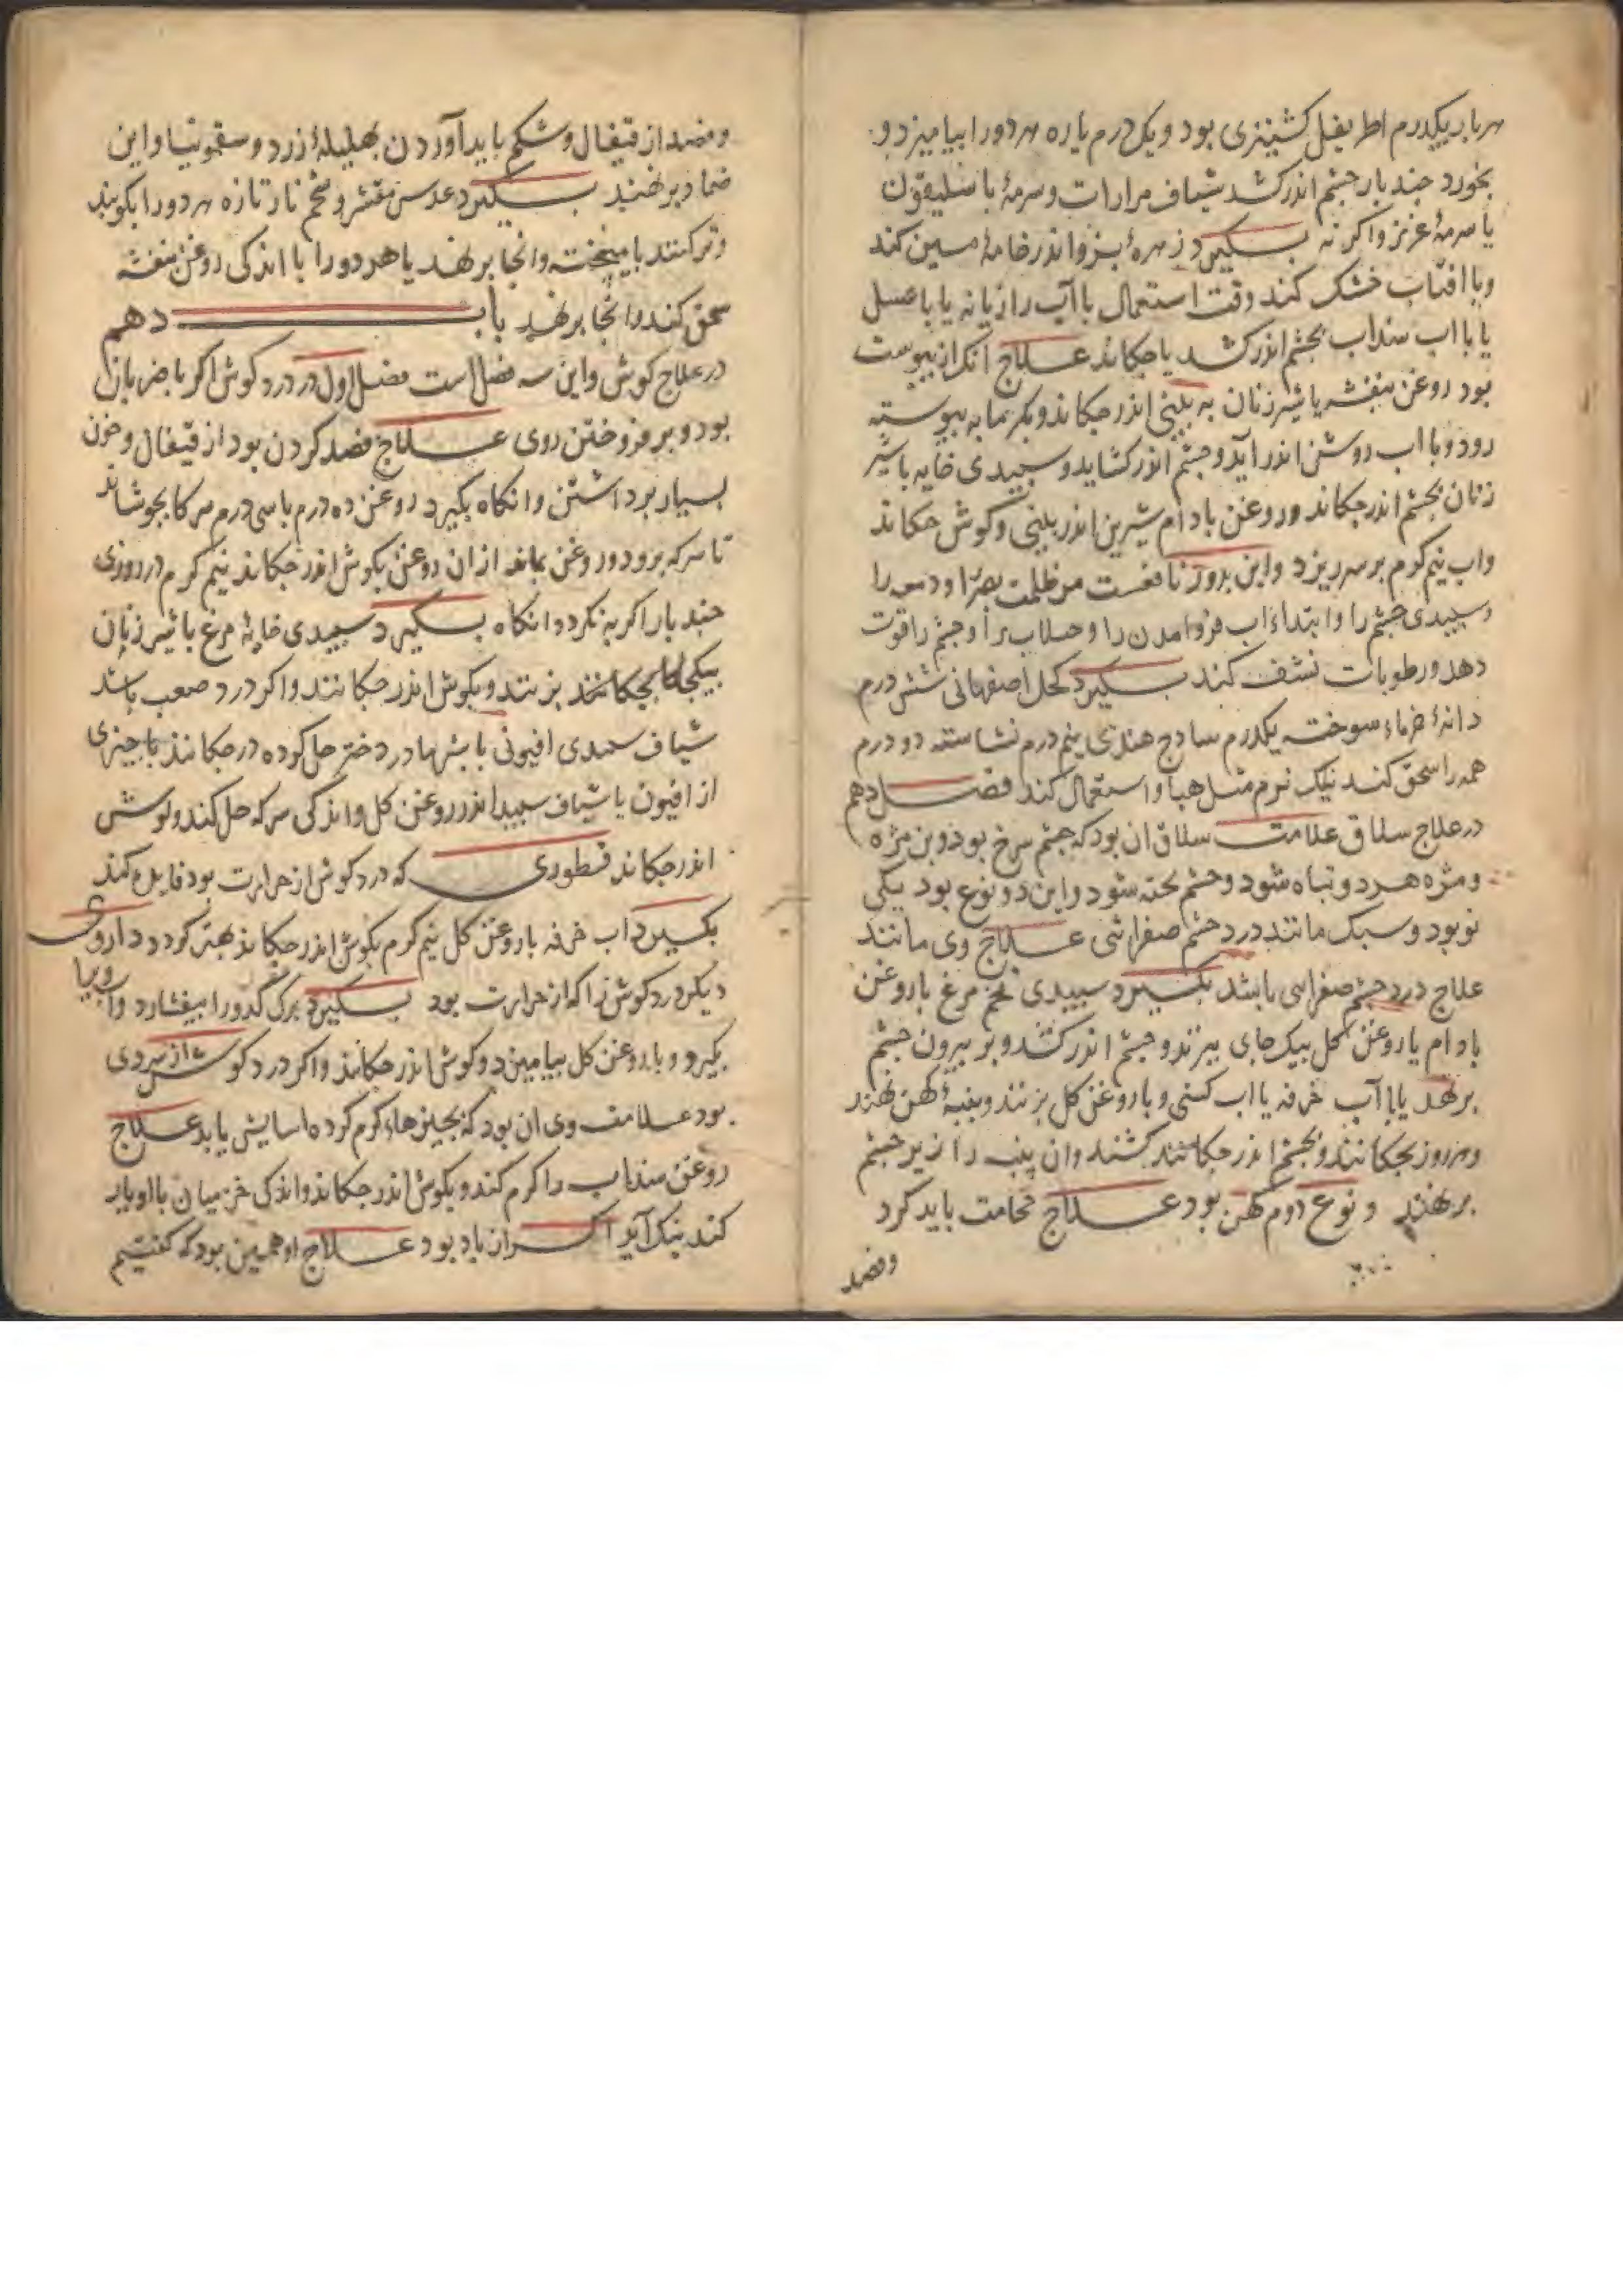 هر بار یکدرم اطریفل کشنیزی بود و یک درم یاره هر دو را بیامیزد و
بخورد جند بار جشم اندر کشد شیاف مرارات و سرمهٔ باسلیقون
یا سرمهٔ عزیز واکر نه بکیرد زهرهٔ بز و اندر خامهٔ مسین کند
وبا افتاب خشک کند وقت استعمال با آب رازیانه یا با عسل
یا با اب سداب بجشم اندر کشد یا جکاند علاج انک از یبوست
بود روغن بنفشه یا شیر زنان به بینی اندر جکاند و بکرمابه پیوسته
رود وبا اب روشن اندر آید وجشم اندر کشاید و سپیدی خایه با شیر
زنان بجشم اندر جکاند و روغن بادام شیرین اندر بینی و کوش جکاند
واب نیم کرم بر سر ریزد واین نافعست مر ظلمت بصر را
وسپیدی جشم را وابتداء اب فروامدن را و جشم را قوت
دهد ورطوبات نشف کند بکیرد کحل اصفهانی شش درم
دانهٔ خرماء سوخته یکدرم سادج هندی نیم درم نشاسته دو درم
همه را سحق کند نیک نرم مثل هبا و استعمال کند فصل دهم
در علاج سلاق علامت سلاق ان بود که جشم سرخ بود و بن مژه
و مژه هر دو تباه شود وجشم شود واین دو نوع بود یکی
نو بود و سبک مانند درد جشم صفرائی علاج وی مانند
علاج درد جشم صفرائی باشد بکیرد سپیدی تخم مرغ با روغن
بادام یا روغن کل بیک جای بزند وجشم اندر کشد وبر بیرون جشم
برنهد یا با آب خرفه یا اب کسنی و با روغن کل بزنند و پنبهٔ کهن نهند
و هر روز بجکانند و بجشم اندر جکانند کشند وان پنبه را زیر جشم
برنهند و نوع دوم کهن بود علاج حجامت باید کرد
وفصد
وفصد از قیفال و شکم باید آوردن بهلیلهٔ زرد و سقمونیا واین
ضماد برنهند بکیرد عدس مقشر و شحم نار تازه هر دو را بکوبند
وتر کنند بامیبخته وانجا برنهد یا هر دو را با اندکی روغن بنفشه
سحق کند وانجا برنهد باب دهم
در علاج کوش واین سه فصل است فصل اول در درد کوش اکر با ضربان
بود و بر فروختن روی علاج فصد کردن بود از قیفال وخون
بسیار برداشتن وانکاه بکیرد روغن ده درم با سی درم سرکا بجوشاند
تا سرکه برود و روغن بماند از ان روغن بکوش اندر جکاند نیم کرم در روزی
جند بار اکر به نکردد انکاه بکیرد سپیدی خایهٔ مرغ با شیر زنان
بیکجا بزنند و بکوش اندر جکانند واکر درد صعب باشد
شیاف سپیدی افیونی با شیر مادر دختر حل کرده در جکانند یا جیزی
از افیون یا شیاف سپید اندر روغن کل واندکی سرکه حل کند وکوش
اندر جکاند قطوری که درد کوش از حرارت بود فایده کند
بکیرد اب خرفه با روغن کل نیم کرم بکوش اندر جکاند بهتر کردد داروی
دیکر درد کوش را که از حرارت بود بکیرد برک کدو را بیفشارد وآب
بکیرد و با روغن کل بیامیزد وکوش اندر جکاند واکر درد کوش از سردی
بود علامت وی ان بود که بجیزهاء کرم کرده اسایش یابد علاج
روغن سداب را کرم کند و بکوش اندر جکاند واندکی میان با او یار
کند نیک آید اکر از باد بود علاج او همین بود که کفتیم